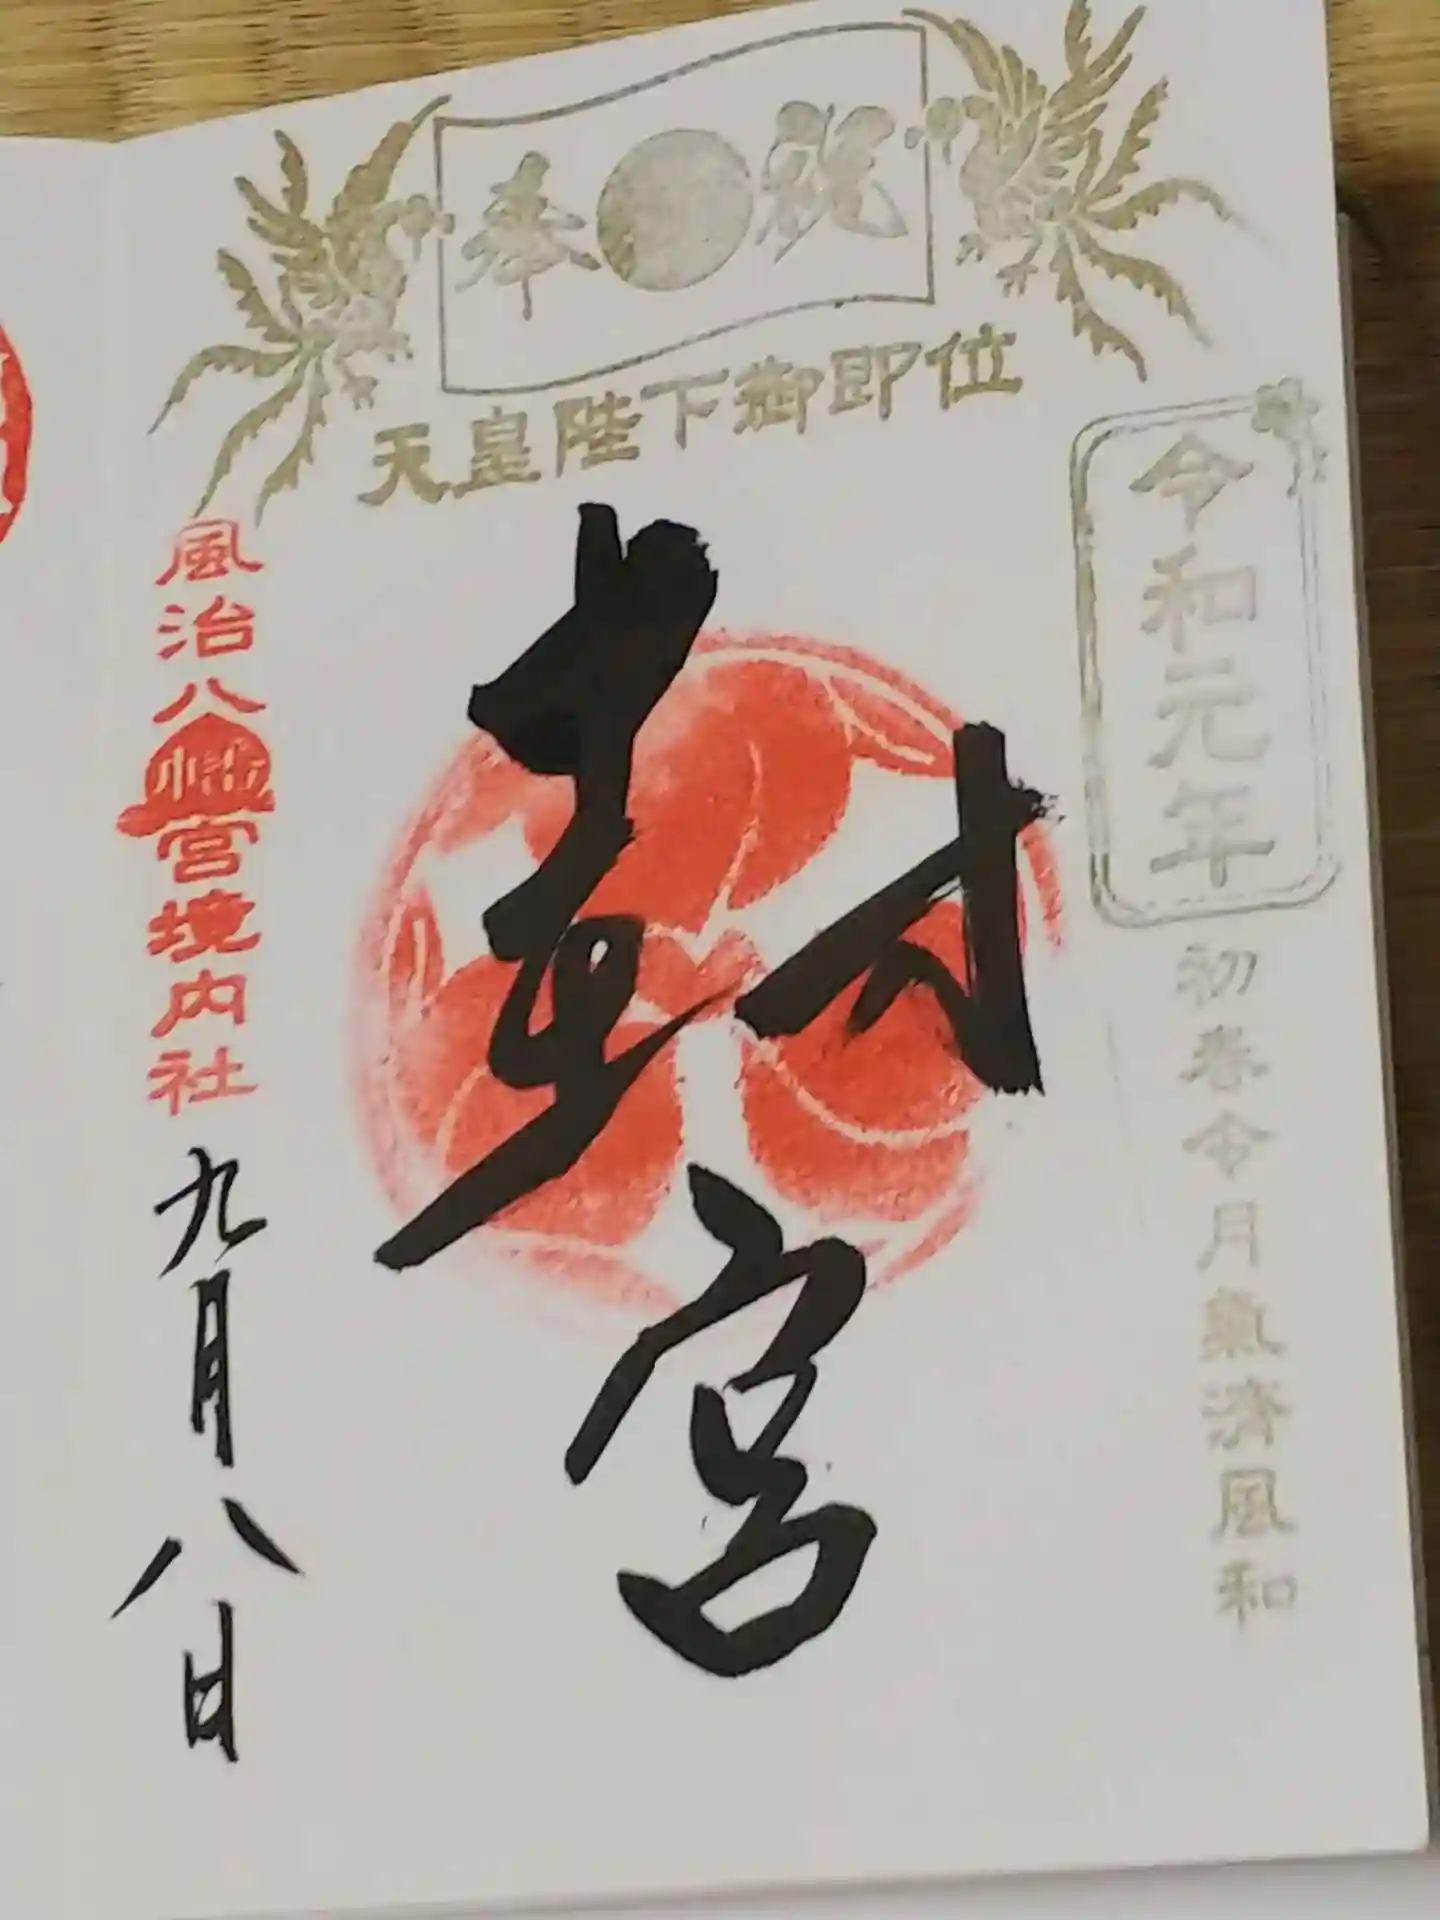 奉祝
天皇陛下御即位
令和元年
初春令月氣淑風和
宮
風治八幡宮境内社
九月八日